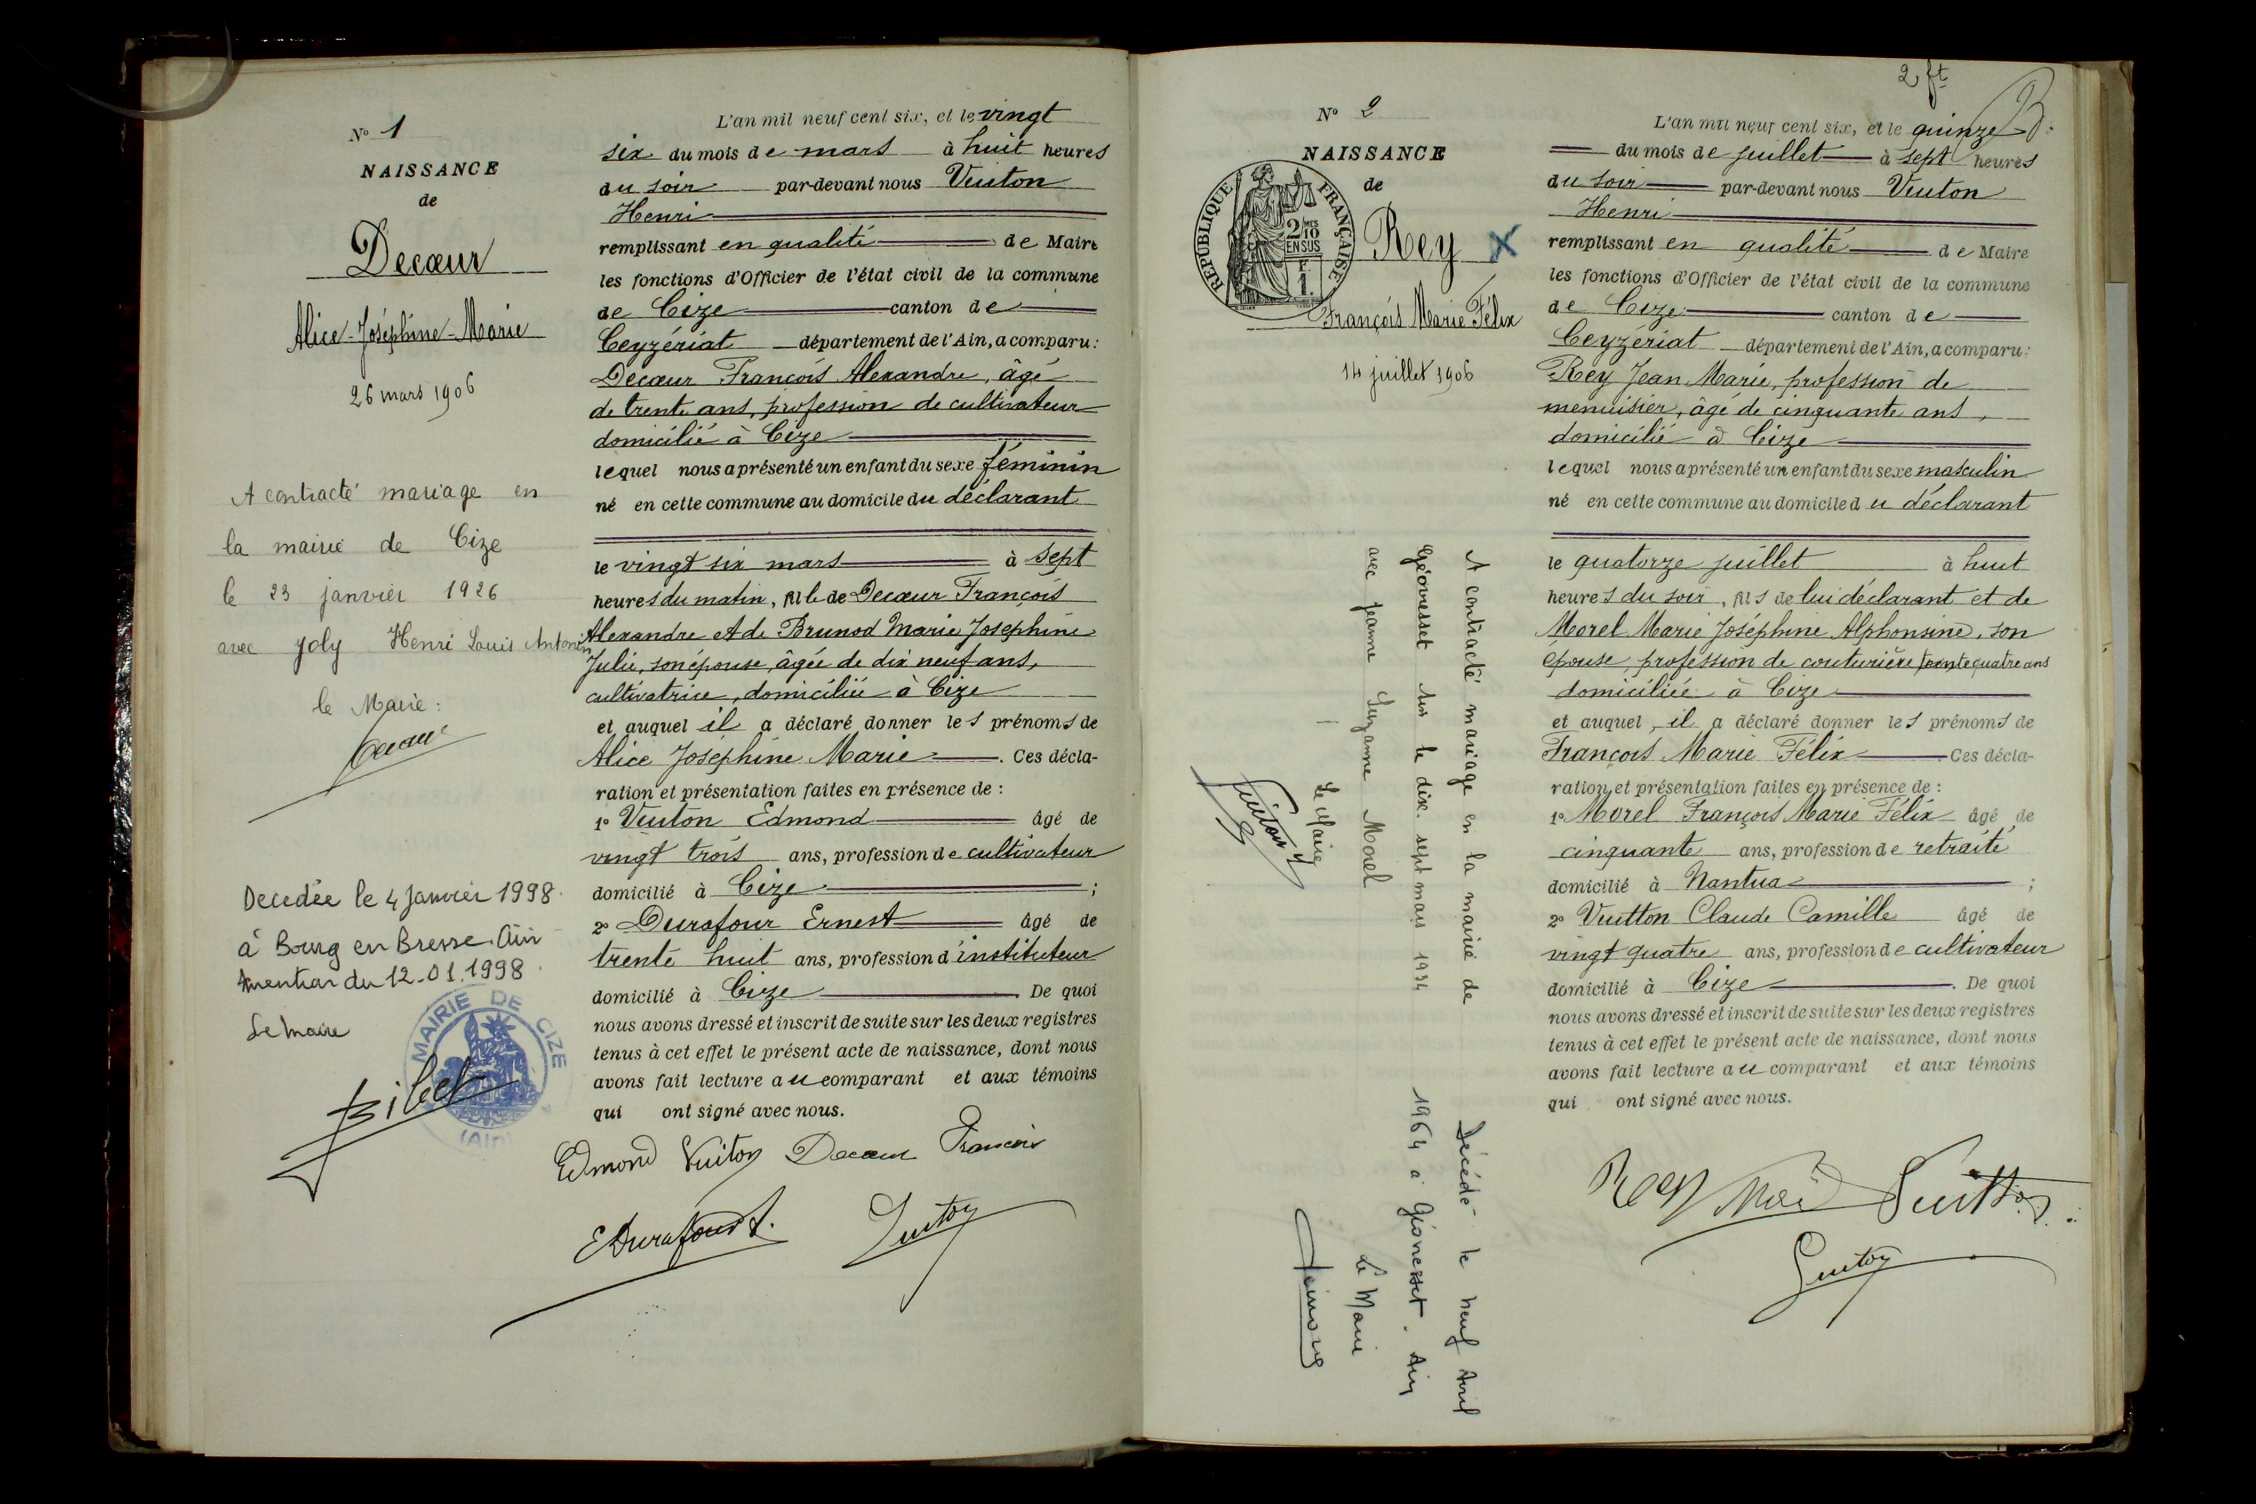 N° 1
NAISSANCE
de
Decœur
Alice-Joséphine-Marie
26 mars 1906
A contracté mariage en
la mairie de Cize
le 23 janvier 1926
avec Joly Henri Louis Antonin
le Maire:
Decedée le 4 Janvier 1998
à Bourg en Bresse Ain
mention du 12-01.1998
Le Maire
MAIRIE DE CIZE
(AIN)
L'an mil neuf cent six, et le vingt
six du mois de mars à huit heures
du soir par-devant nous Vuiton
Henri
remplissant en qualité de Maire
les fonctions d'Officier de l'état civil de la commune
de Cize canton de
Ceyzériat département de l'Ain, a comparu:
Decœur François Alexandre, âgé
de trente ans, profession de cultivateur
domicilié à Cize
lequel nous a présenté un enfant du sexe féminin
né en cette commune au domicile du déclarant
le vingt six mars à sept
heures du matin, fille de Decœur François
Alexandre et de Brunod Marie Josephine
Julie, son épouse, âgée de dix neuf ans,
cultivatrice, domiciliée à Cize
et auquel il a déclaré donner les prénoms de
Alice Joséphine Marie. Ces décla-
ration et présentation faites en présence de :
1° Vuiton Edmond âgé de
vingt trois ans, profession de cultivateur
domicilié à Cize ;
2° Durafour Ernest âgé de
trente huit ans, profession d'instituteur
domicilié à Cize. De quoi
nous avons dressé et inscrit de suite sur les deux registres
tenus à cet effet le présent acte de naissance, dont nous
avons fait lecture au comparant et aux témoins
qui ont signé avec nous.
Edmond Vuiton Decœur François
E Durafour Vuiton
2 ft
N° 2
NAISSANCE
de
RÉPUBLIQUE FRANÇAISE
2/10
EN SUS
F.
1.
Rey X
François Marie Félix
14 juillet 1906
A contracté mariage en la mairie de
Géovresset Ain le dix-sept mars 1934
avec Jeanne Suzanne Morel
Le Maire
Vuiton
Décédé le neuf Avril
1964 à Géovresset. Ain
Le Maire
L'an mil neuf cent six, et le quinze
du mois de juillet à sept heures
du soir par-devant nous Vuiton
Henri
remplissant en qualité de Maire
les fonctions d'Officier de l'état civil de la commune
de Cize canton de
Ceyzériat département de l'Ain, a comparu:
Rey Jean Marie, profession de
menuisier, âgé de cinquante ans,
domicilié à Cize
lequel nous a présenté un enfant du sexe masculin
né en cette commune au domicile du déclarant
le quatorze juillet à huit
heures du soir, fils de lui déclarant et de
Morel Marie Joséphine Alphonsine, son
épouse, profession de couturière trente quatre ans
domiciliée à Cize
et auquel il a déclaré donner les prénoms de
François Marie Félix Ces décla-
ration et présentation faites en présence de :
1° Morel François Marie Félix âgé de
cinquante ans, profession de retraité
domicilié à Nantua ;
2° Vuitton Claude Camille âgé de
vingt quatre ans, profession de cultivateur
domicilié à Cize. De quoi
nous avons dressé et inscrit de suite sur les deux registres
tenus à cet effet le présent acte de naissance, dont nous
avons fait lecture au comparant et aux témoins
qui ont signé avec nous.
Rey Vuitton
Vuiton